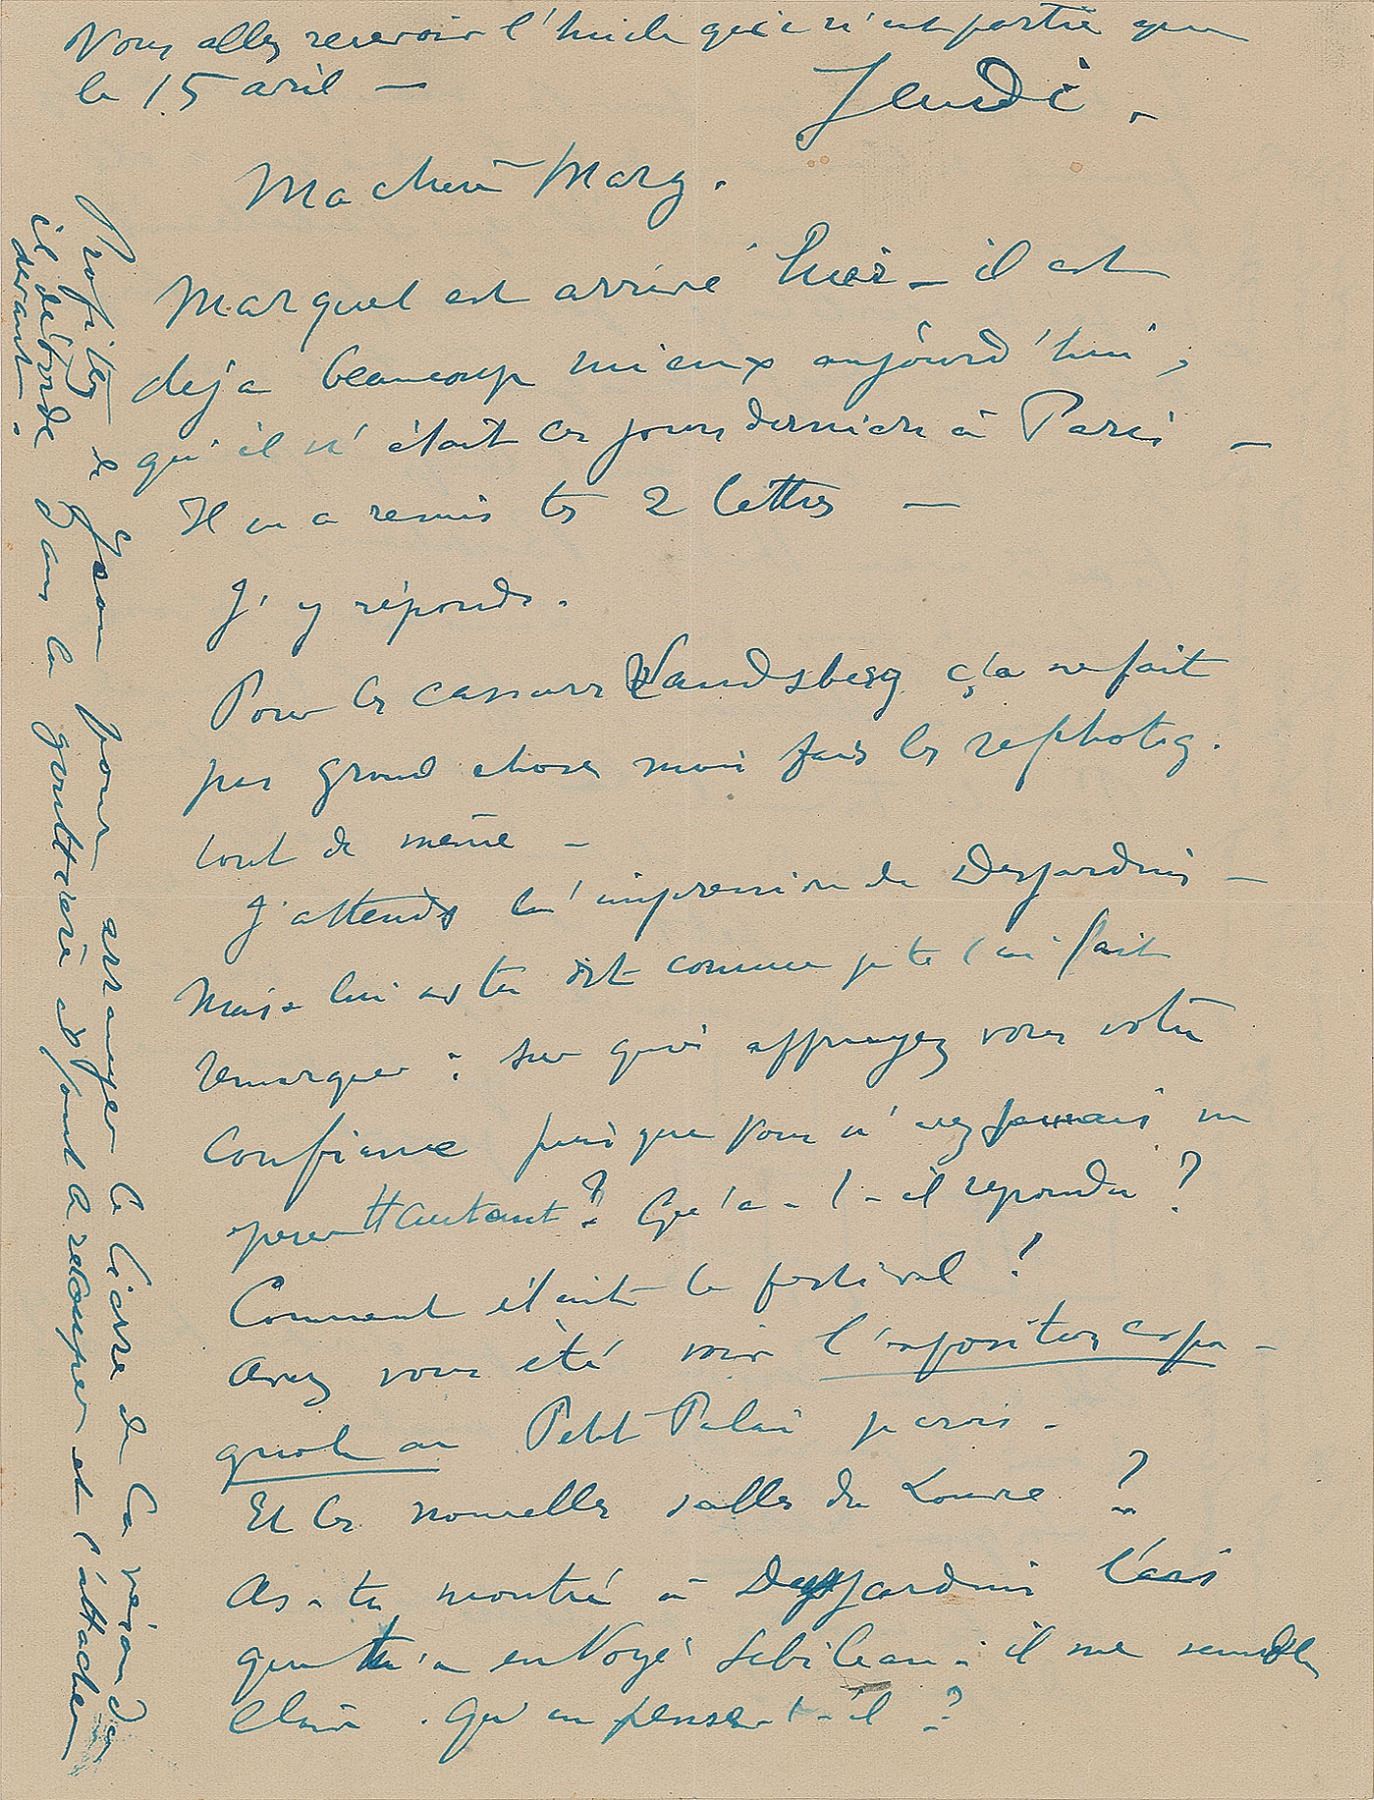 Vous allez recevoir l'huile qui n'est partie que
le 15 avril —
Jeudi.
Ma chère Marg.
Marquet est arrivé hier — il est
déja beaucoup mieux aujourd'hui,
qu'il n'était ces jours derniers à Paris —
Il m'a remis tes 2 lettres —
J'y réponds.
Pour les Landsberg ça ne fait
pas grand chose mais fais les rephotog.
tout de même —
J'attends l'impression de Desjardins —
Mais lui as tu dit comme je te l'ai fait
remarquer : sur quoi appuyez vous votre
confiance puisque vous n'avez jamais vu
Qu'a-t-il répondu ?
Comment était le festival ?
Avez vous été voir l'exposition espa-
gnole au Petit Palais
Et les nouvelles salles du Louvre ?
As-tu montré à Desjardins l'avis
que t'a envoyé Sebileau - il me semble
clair. Qu'en pense-t-il ?
Profitez de pour arranger le lierre de la véranda
il déborde dans la gouttière il faut le recouper et l'attacher
devant.